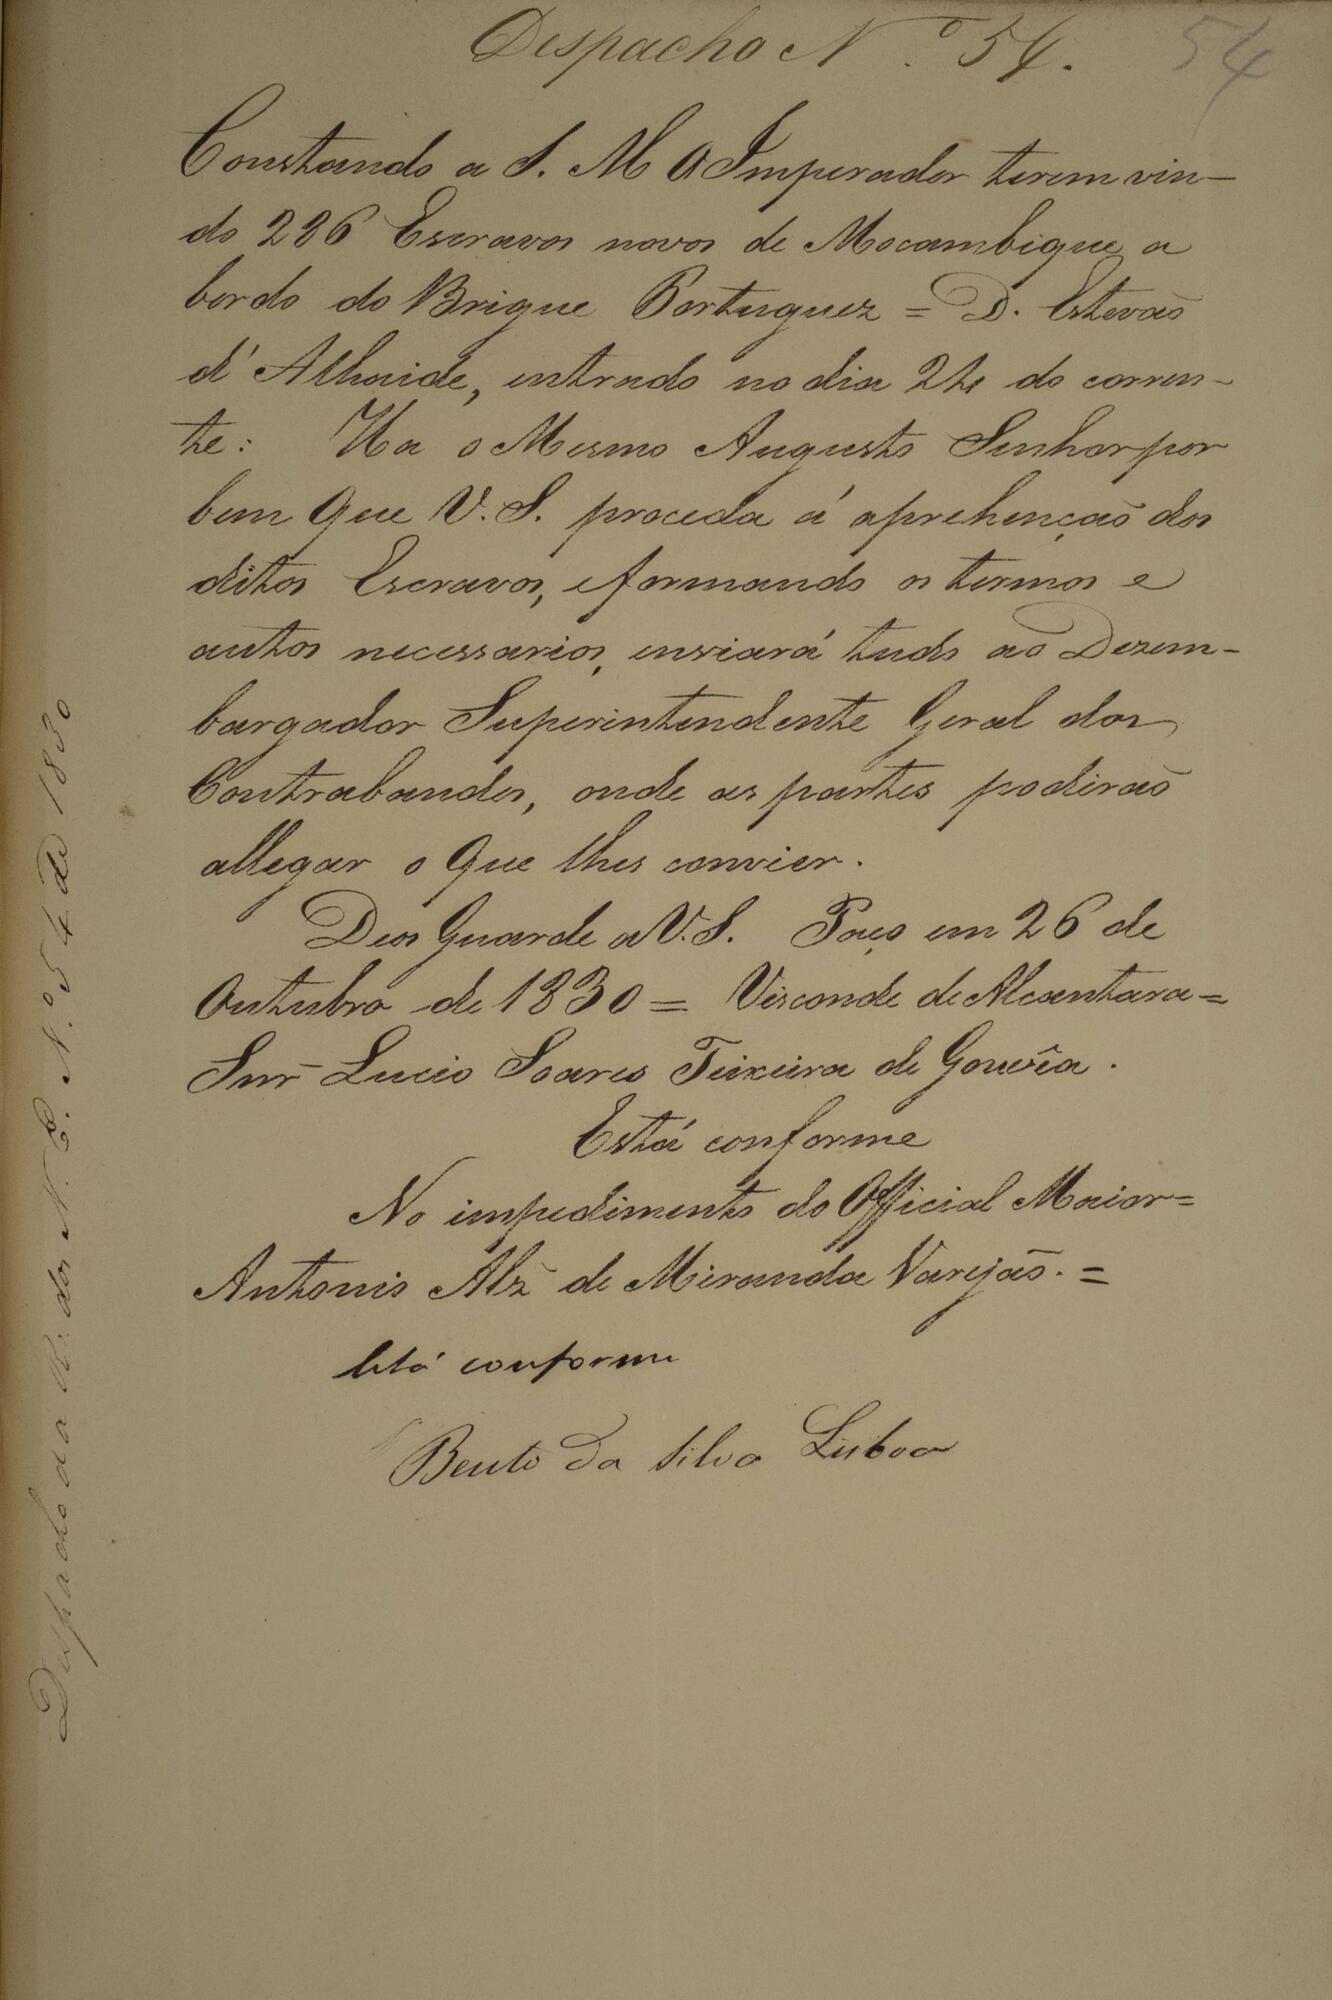 Despacho N.º 54.
54
Constando a S. M O Imperador terem vin-
do 286 Escravos novos de Mocambique a
bordo do Brigue Portuguez = D. Estevaõ
d'Athaide, entrado no dia 24 do corren-
te: Ha o Mesmo Augusto Senhor por
bem que V. S. proceda á aprehençaõ dos
ditos Escravos, e formando os termos e
autos necessarios, enviará tudo ao Dezem-
bargador Superintendente Geral dos
Contrabandos, onde as partes poderaõ
allegar o que lhes convier.
Deos Guarde a V. S. Paço em 26 de
Outubro de 1830 = Visconde de Alcantara =
Snr Lucio Soares Teixeira de Gouvêa.
Está conforme
No impedimento do Official Maior =
Antonio Alz̃ de Miranda Varejaõ. =
Está conforme
Bento da Silva Lisboa
Despacho da R. dos N. E. N.º 54 de 1830